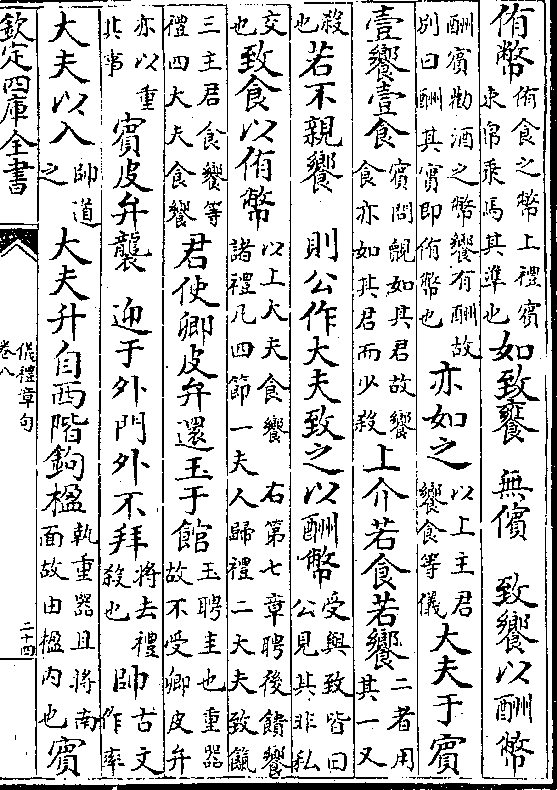 侑幣侑食之幣上禮賓束帛乘馬其準也如致饔　無儐　致饗以酬幣
酬賓勸酒之幣饗有酬故別曰酬其實即侑幣也亦如之以上主君饗食等儀大夫于賓
壹饗壹食賓問覿如其君故饗食亦如其君而少殺上介若食若饗二者用其一又
殺也若不親饗　則公作大夫致之以酬幣受與致皆曰公見其非私
交也致食以侑幣以上大夫食饗　右第七章聘後饋饗諸禮凡四節一夫人歸禮二大夫致餼
三主君食饗等禮四大夫食饗君使卿皮弁還玉于館玉聘圭也重器故不受卿皮弁
亦以重其事賓皮弁襲　迎于外門外不拜將去禮殺也帥古文作率
大夫以入帥道之大夫升自西階鉤楹執重器且將南面故由楹内也賓
欽定四庫全書
儀禮章句
卷八
二十四